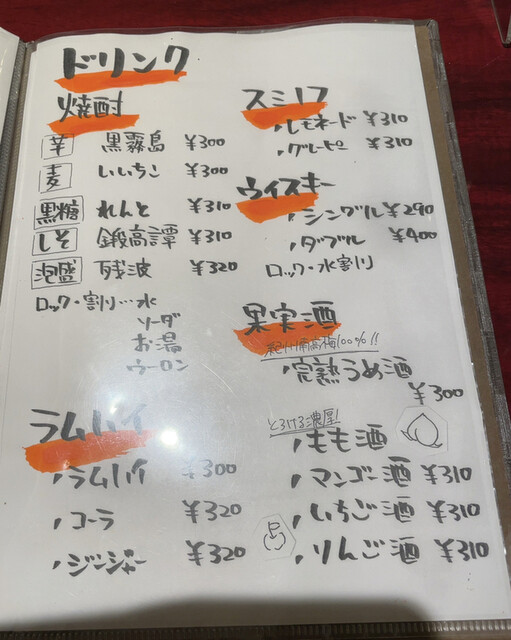 ドリンク
焼酎
芋 黒霧島 ¥300
麦 いいちこ ¥300
黒糖 れんと ¥310
しそ 鍛高譚 ¥310
泡盛 残波 ¥320
ロック・割り…水
ソーダ
お湯
ウーロン
ラムハイ
・ラムハイ ¥300
・コーラ ¥320
・ジンジャー ¥320
スミノフ
・レモネード ¥310
・グレーピー ¥310
ウイスキー
・シングル ¥290
・ダブル ¥400
ロック・水割り
果実酒
紀州南高梅100%!!
・完熟うめ酒
¥300
とろける濃厚!
・もも酒
・マンゴー酒 ¥310
・いちご酒 ¥310
・りんご酒 ¥310